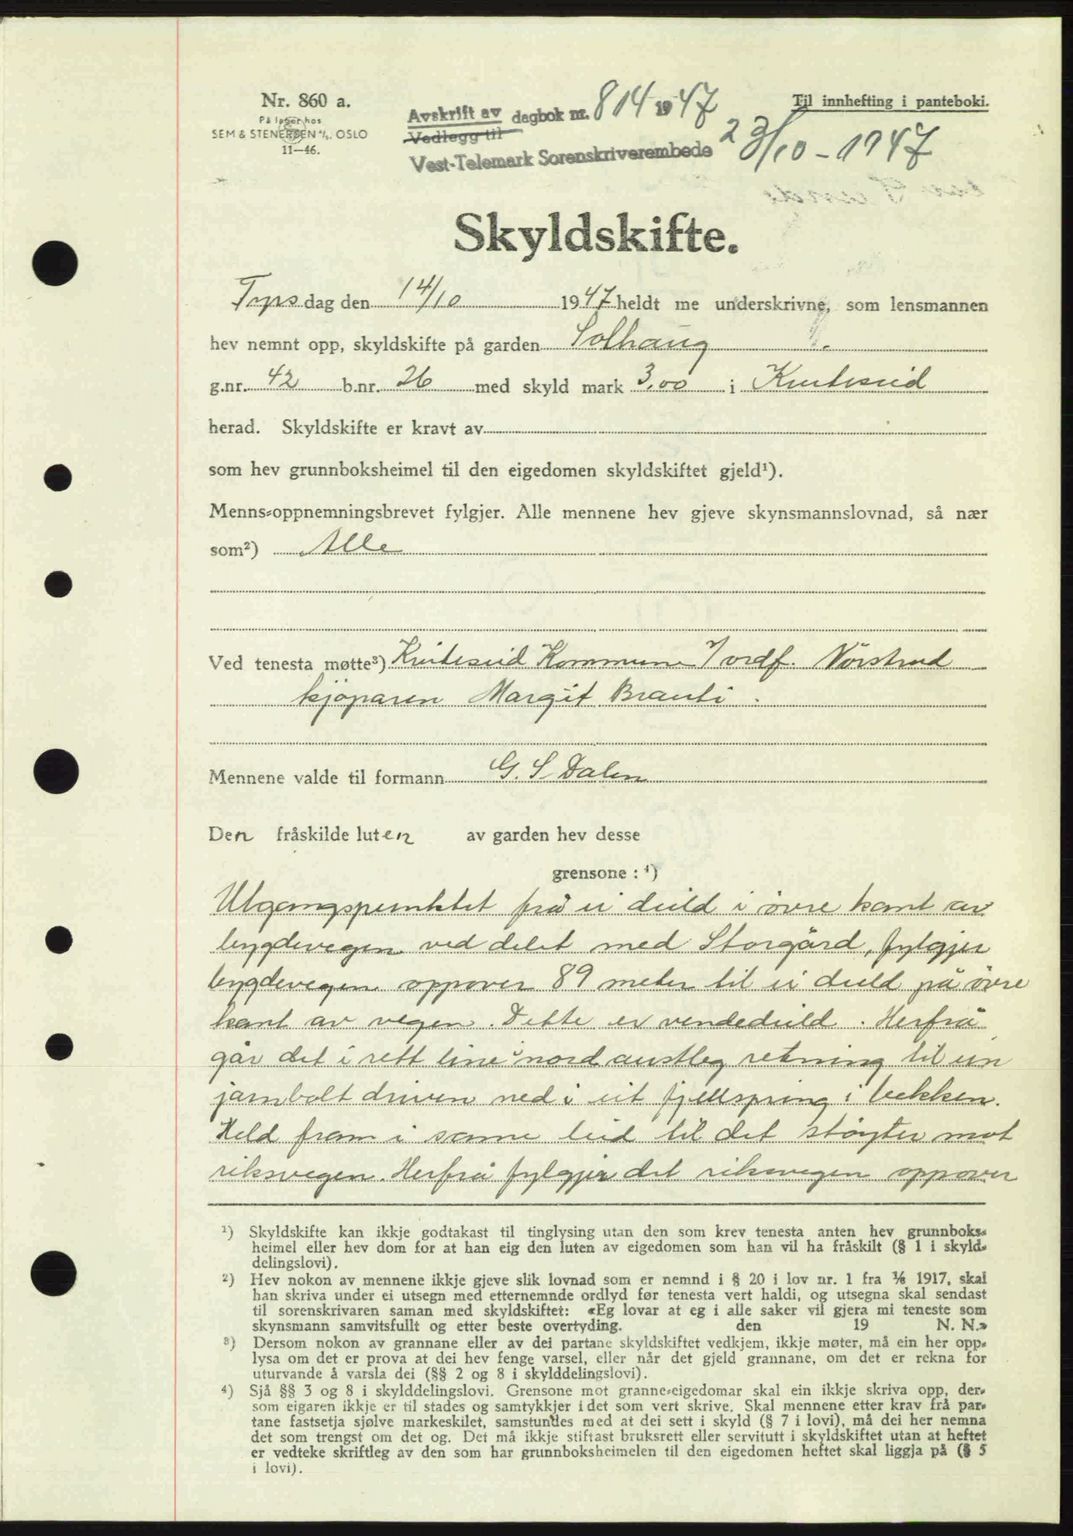 Nr. 860 a.
På lager hos
SEM & STENERSEN A/S, OSLO
11—46.
Avskrift av
Vedlegg til
dagbok nr. 814 1947
Vest-Telemark Sorenskriverembede
Til innhefting i panteboki.
23/10 - 1947
Skyldskifte.
Tys dag den 14/10 1947 heldt me underskrivne, som lensmannen
hev nemnt opp, skyldskifte på garden Solhaug
g.nr. 42 b.nr. 26 med skyld mark 3,00 i Kviteseid
herad. Skyldskifte er kravt av
som hev grunnboksheimel til den eigedomen skyldskiftet gjeld¹).
Menns-oppnemningsbrevet fylgjer. Alle mennene hev gjeve skynsmannslovnad, så nær
som²) Alle
Ved tenesta møtte³) Kviteseid Kommune v/ ordf. Nörstrud
kjöparen Margit Brauti.
Mennene valde til formann G. S. Dalen
Den fråskilde luten av garden hev desse
grensone : ⁴)
Utgangspunktet frå ei deild i övre kant av
bygdevegen ved delet med Storgård, fylgjer
bygdevegen oppover 89 meter til ei deild på övre
kant av vegen. Dette er vendedeild. Herfrå
går det i rett line i nordaustleg retning til ein
jarnbolt driven ned i eit fjellspring i bekken.
Held fram i same leid til det stöyter mot
riksvegen. Herfrå fylgjer det riksvegen oppover
¹) Skyldskifte kan ikkje godtakast til tinglysing utan den som krev tenesta anten hev grunnboks-
heimel eller hev dom for at han eig den luten av eigedomen som han vil ha fråskilt (§ 1 i skyld-
delingslovi).
²) Hev nokon av mennene ikkje gjeve slik lovnad som er nemnd i § 20 i lov nr. 1 fra 1/6 1917, skal
han skriva under ei utsegn med etternemnde ordlyd før tenesta vert haldi, og utsegna skal sendast
til sorenskrivaren saman med skyldskiftet: «Eg lovar at eg i alle saker vil gjera mi teneste som
skynsmann samvitsfullt og etter beste overtyding. den 19 N. N.»
³) Dersom nokon av grannane eller av dei partane skyldskiftet vedkjem, ikkje møter, må ein her opp-
lysa om det er prova at dei hev fenge varsel, eller når det gjeld grannane, om det er rekna for
uturvande å varsla dei (§§ 2 og 8 i skylddelingslovi).
⁴) Sjå §§ 3 og 8 i skylddelingslovi. Grensone mot granne-eigedomar skal ein ikkje skriva opp, der-
som eigaren ikkje er til stades og samtykkjer i det som vert skrive. Skal mennene etter krav frå par-
tane fastsetja sjølve markeskilet, samstundes med at dei sett i skyld (§ 7 i lovi), må dei her nemna
det som trengst om det og. Det må ikkje stiftast bruksrett eller servitutt i skyldskiftet utan at heftet
er vedteke skriftleg av den som har grunnboksheimelen til den eigedomen heftet skal liggja på (§ 5
i lovi).